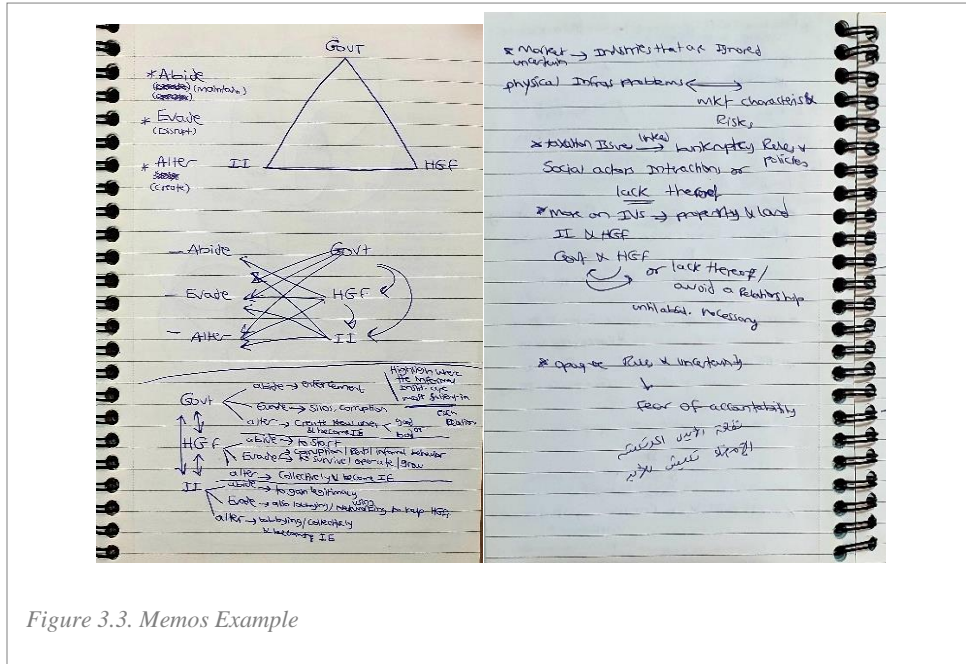 GOVT
* Abide
(maintain)
* Evade
(Disrupt)
* Alter
(create)
II
HGF
- Abide
Govt
- Evade
HGF
- Alter
II
Highlight where
the informal
instit. are
most salient in
each
relation
Govt
abide → enforcement
Evade → silos, corruption
alter → Create new ones
& become IE
good
or
bad
HGF
abide → to start
Evade → corruption / informal behavior
to survive / operate / grow
alter → Collectively & become IE
II
abide → to gain legitimacy
Evade → also lobbying / networking to help HGF
using
alter → lobbying / collectively
& become IE
* Market → Industries that are Ignored
uncertain
physical Infras Problems
mkt characteristi
Risks
* taxation Issues → bankruptcy Rules &
(linked)
policies
Social actors Interactions or
lack thereof
* More on INVs → property & land
II & HGF
Govt & HGF
or lack thereof /
avoid a Relationship
until necessary
* Rules & uncertainty
Fear of accountability
Figure 3.3. Memos Example